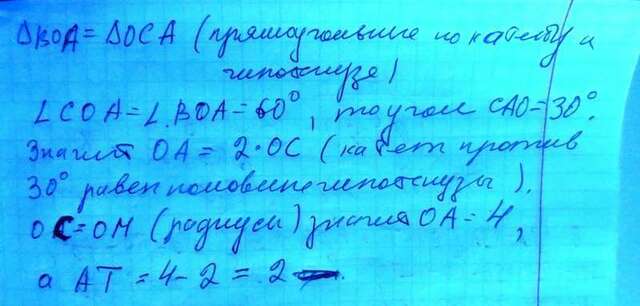 ΔBOA = ΔOCA (прямоугольные по катету и
гипотенузе)
∠COA = ∠BOA = 60°, то угол CAO = 30°.
Значит OA = 2·OC (катет против
30° равен половине гипотенузы).
OC = OM (радиусы) значит OA = 4,
а AT = 4 - 2 = 2